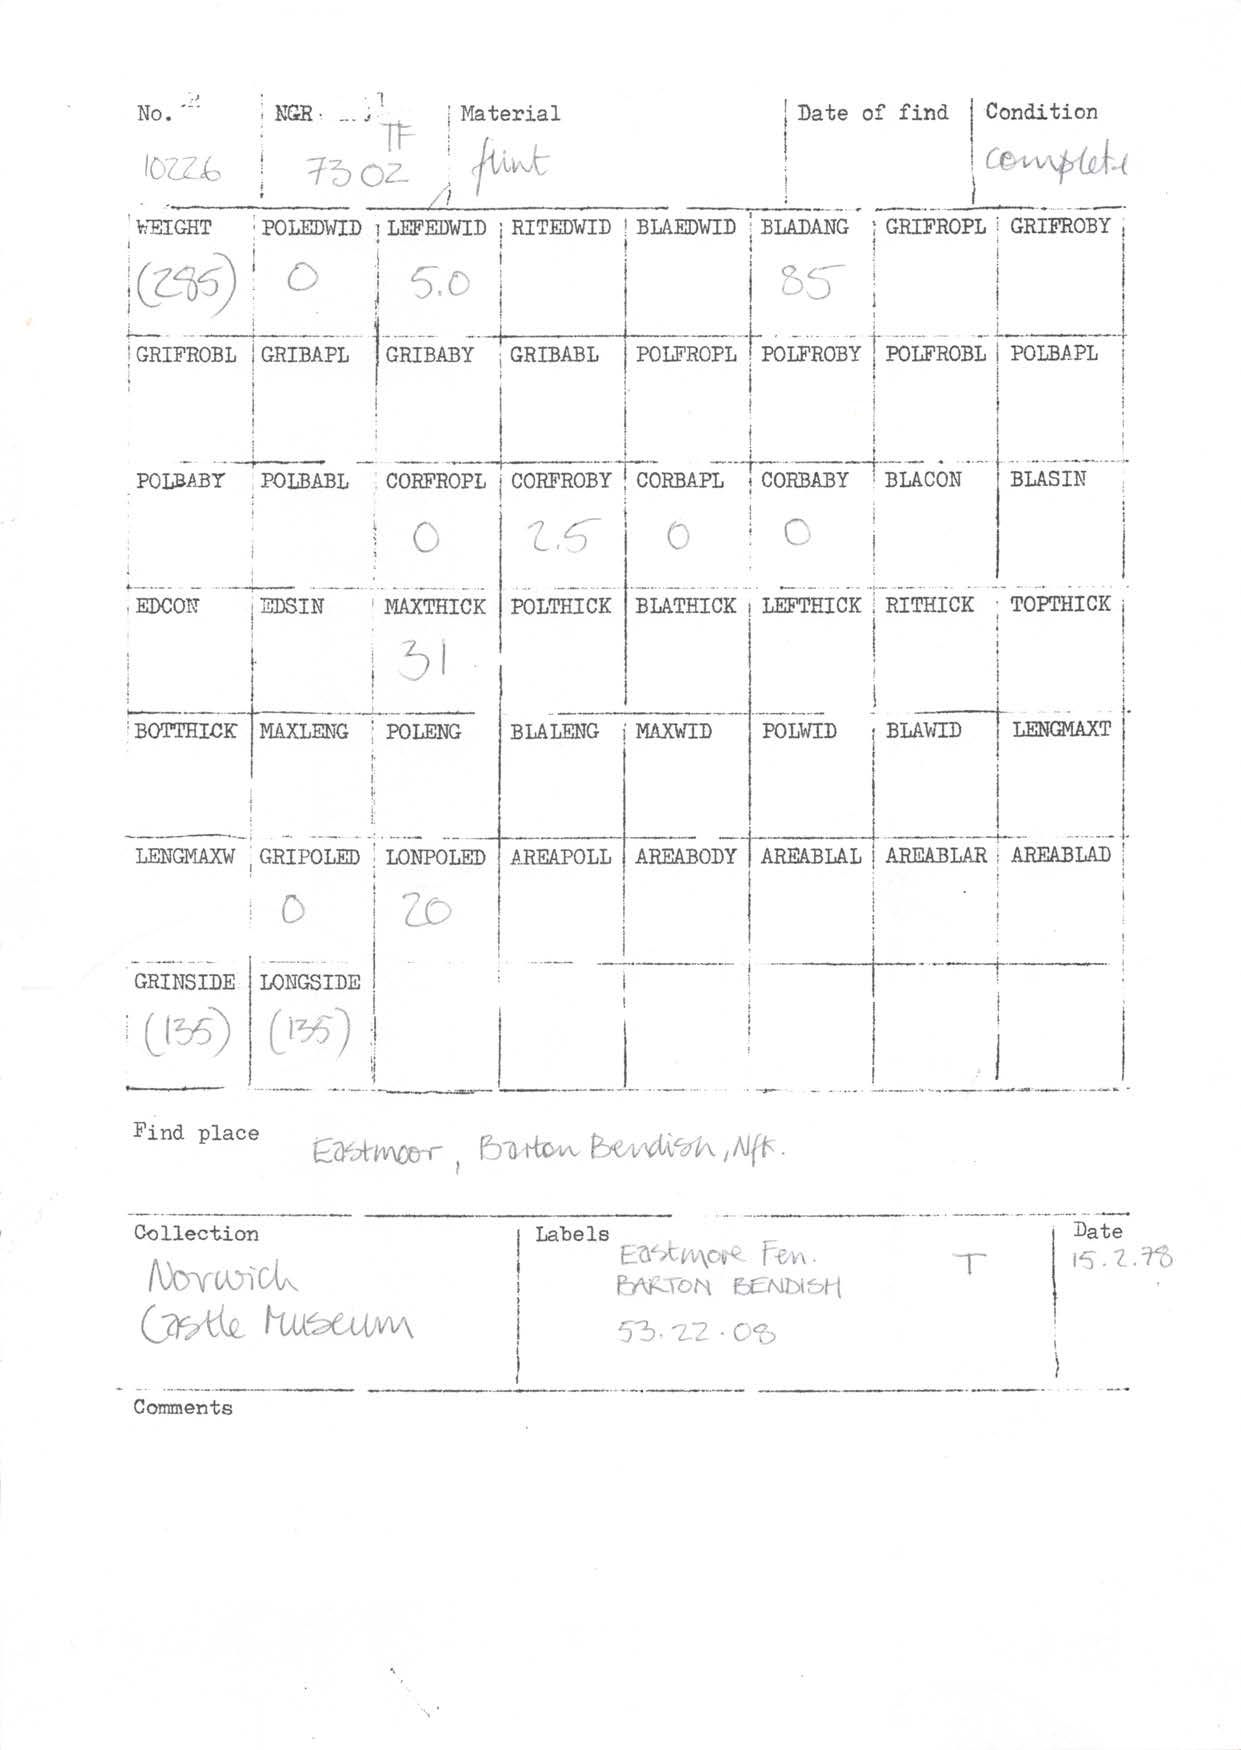 No. NGR Material Date of find Condition
10226 TF 7302 flint complete
WEIGHT POLEDWID LEFEDWID RITEDWID BLAEDWID BLADANG GRIFROPL GRIFROBY
(285) 0 5.0 85
GRIFROBL GRIBAPL GRIBABY GRIBABL POLFROPL POLFROBY POLFROBL POLBAPL
POLBABY POLBABL CORFROPL CORFROBY CORBAPL CORBABY BLACON BLASIN
0 2.5 0 0
EDCON EDSIN MAXTHICK POLTHICK BLATHICK LEFTHICK RITHICK TOPTHICK
31
BOTTHICK MAXLENG POLENG BLALENG MAXWID POLWID BLAWID LENGMAXT
LENGMAXW GRIPOLED LONPOLED AREAPOLL AREABODY AREABLAL AREABLAR AREABLAD
0 20
GRINSIDE LONGSIDE
(135) (135)
Find place Eastmoor, Barton Bendish, Nfk.
Collection Labels Date
Norwich Eastmore Fen. T 15.2.78
Castle Museum BARTON BENDISH
53.22.08
Comments